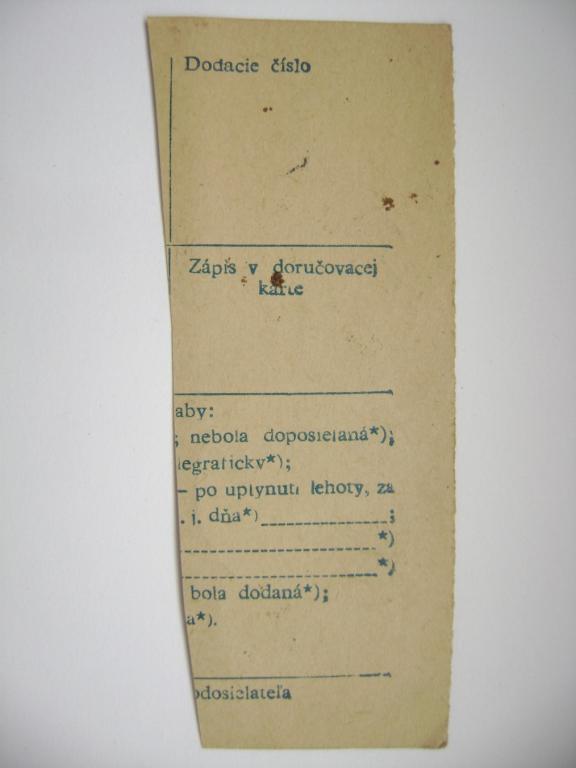 Dodacie číslo
Zápis v doručovacej
karte
aby:
; nebola doposielaná*);
legraficky*);
— po uplynutí lehoty, za
. j. dňa*) ;
*)
*)
bola dodaná*);
a*).
odosielateľa